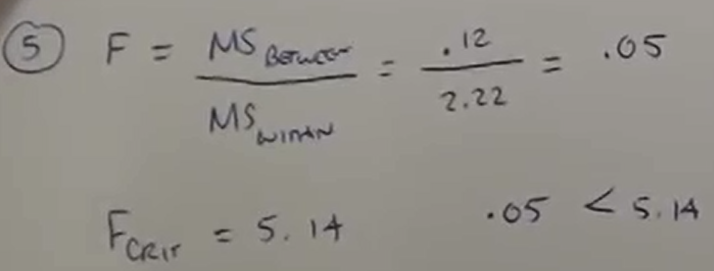 5 F = MS BETWEEN / MS WITHIN = .12 / 2.22 = .05
FCRIT = 5.14 .05 < 5.14